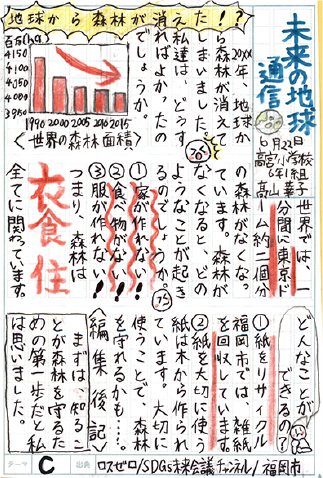 未来の地球
通信
6月22日
高宮小学校
6年1組
高山 華子
地球から森林が消えた!?
20XX年、地球か
ら森林が消えて
しまいました。
私達は、どうす
ればよかったの
でしょうか。
百万(ha)
4150
4100
4050
4000
3950
1990 2000 2005 2010 2015
〈世界の森林面積〉
世界では、一
分間に東京ド
ーム約二個分
の森林がなくな
っています。森林が
なくなると、どの
ようなことが起き
るのでしょうか。
①家が作れない!
②食べ物がない!
③服が作れない!!
つまり、森林は
全てに関わっています。
衣食住
どんなことが
できるの?
①紙をリサイクル
福岡市では、雑紙
を回収しています。
②紙を大切に使う
紙は木から作られ
ています。大切に
使うことで、森林
を守れるかも…。
〈編集後記〉
まずは、知るこ
とが森林を守るた
めの第一歩だと私
は思いました。
テーマ C 出典 ロスゼロ/SDGs未来会議チャンネル/福岡市